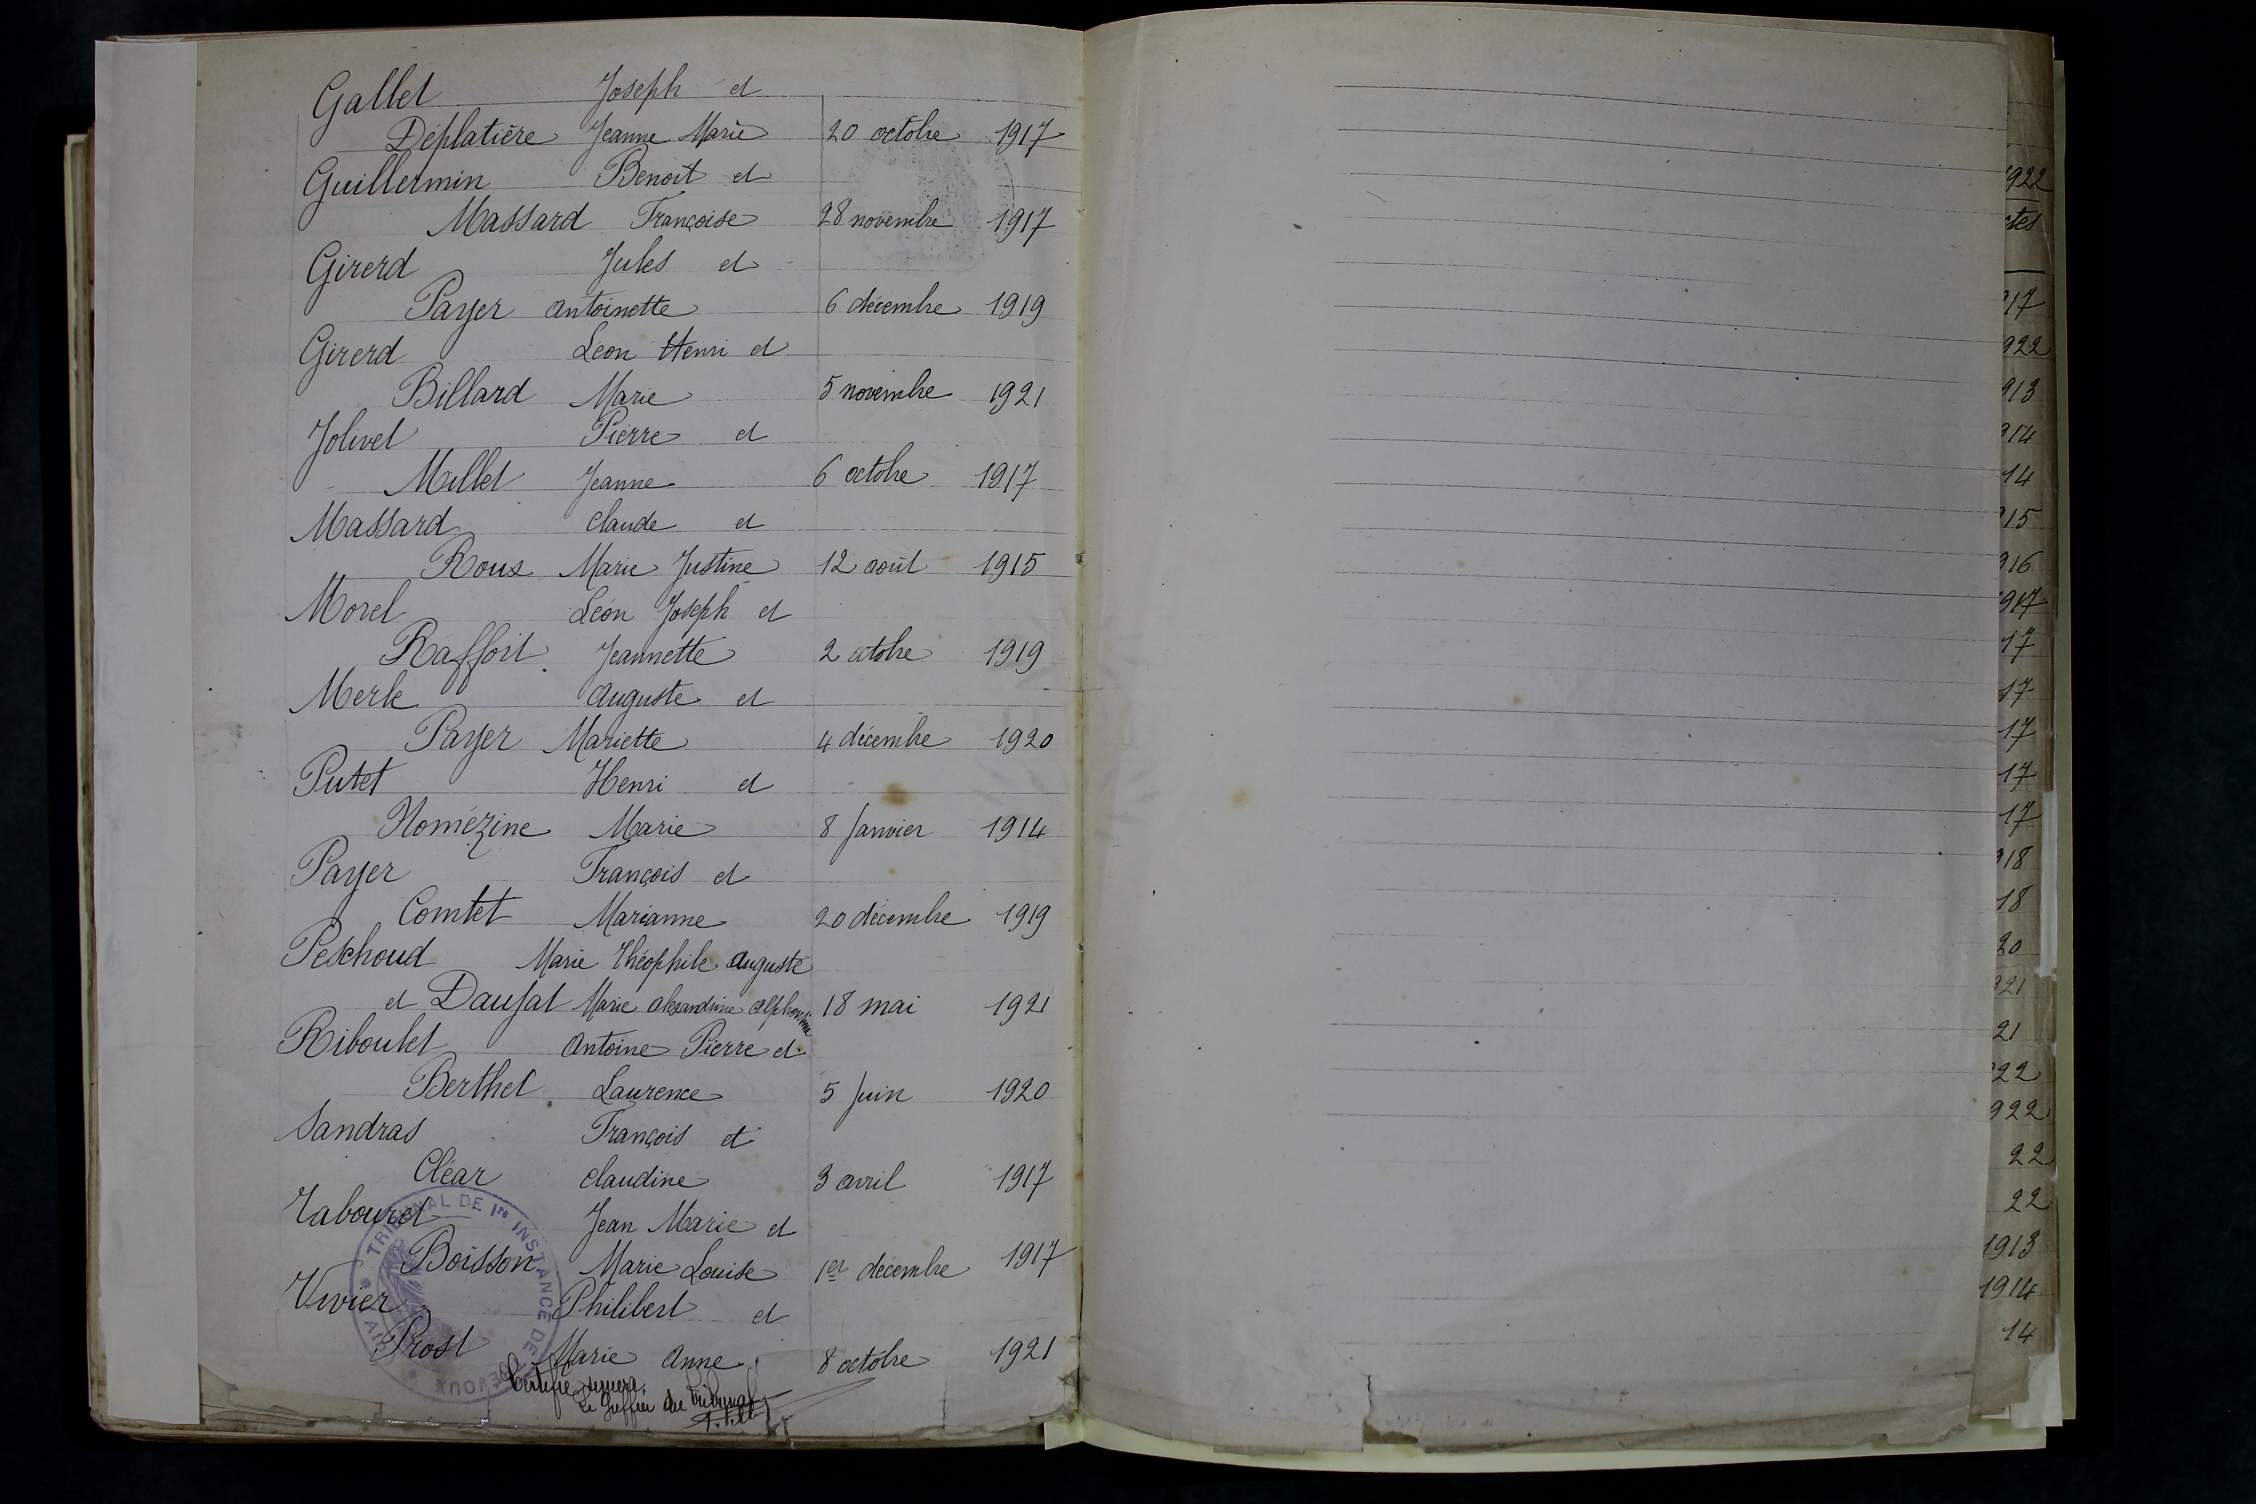 Gallet Joseph et
Déplatière Jeanne Marie 20 octobre 1917
Guillermin Benoît et
Massard Françoise 28 novembre 1917
Girerd Jules et
Payer Antoinette 6 décembre 1919
Girerd Léon Henri et
Billard Marie 5 novembre 1921
Jolivet Pierre et
Millet Jeanne 6 octobre 1917
Massard Claude et
Roux Marie Justine 12 août 1915
Morel Léon Joseph et
Raffort Jeannette 2 octobre 1919
Merle Auguste et
Payer Mariette 4 décembre 1920
Putet Henri et
Nomézine Marie 8 Janvier 1914
Payer François et
Comtet Marianne 20 décembre 1919
Peschoud Marie Théophile Auguste
et Daujat Marie Alexandrine Alphonsine 18 mai 1921
Riboulet Antoine Pierre et
Berthet Laurence 5 Juin 1920
Sandras François et
Cléar Claudine 3 avril 1917
Tabouret Jean Marie et
Boisson Marie Louise 1er décembre 1917
Vivier Philibert et
Prost Marie Anne 8 octobre 1921
Certifié
Le Greffier du Tribunal
TRIBUNAL DE 1re INSTANCE DE TREVOUX
AIN
1922
ctes
917
922
913
914
14
915
916
1917
17
17
17
17
17
918
18
20
921
21
22
922
22
22
1913
1914
14